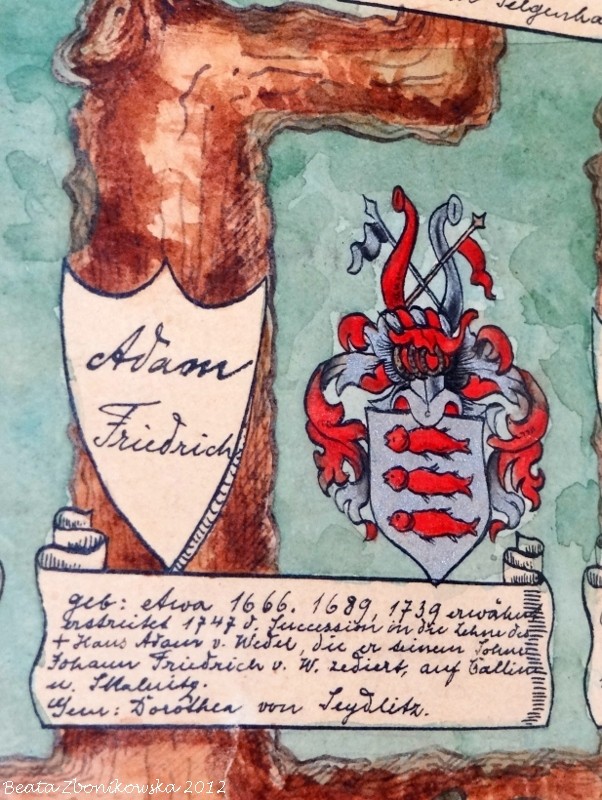 Selgenha
Adam
Friedrich
geb: etwa 1666. 1689, 1739 erwähnt
erstreitet 1747 d. Succession in die Lehne des
+ Hans Adam v. Wedel, die er seinem Sohne
Johann Friedrich v. W. zediert, auf
u.
Gem: Dorothea von Seydlitz.
Beata Zbonikowska 2012